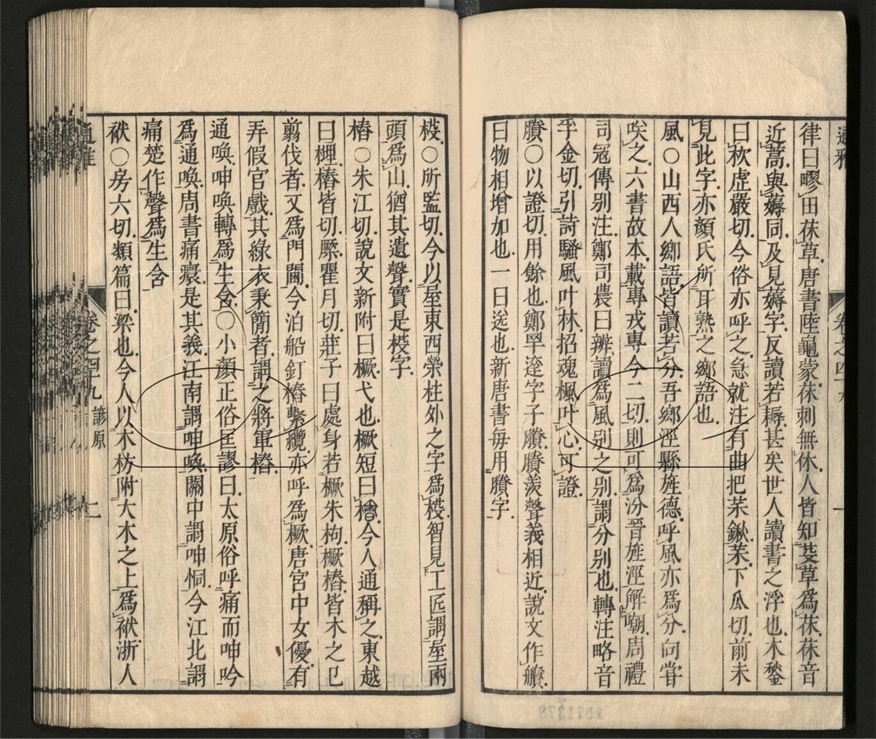 律曰疁田茠草唐書陸龜蒙茠刺無休人皆知芟草爲茠茠音
近蒿與薅同及見薅字反讀若耨甚矣世人讀書之浮也木鍫
曰杴虛嚴切今俗亦呼之急就注有曲把茉鍬茉下瓜切前未
見此字亦顏氏所耳熟之鄉語也
風○山西人鄉語皆讀若分吾鄉涇縣旌德呼風亦爲分向嘗
唉之六書故本載專戎專今二切則可爲汾晉旌涇解嘲周禮
司冦傳别注鄭司農曰辨讀爲風别之别謂分别也轉注略音
孚金切引詩騷風叶林招魂楓叶心可證
賸○以證切用餘也鄭罕達字子賸賸羨聲義相近說文作
曰物相增加也一曰送也新唐書毎用賸字
椄○所監切今以屋東西榮柱外之字爲椄智見工匠謂屋兩
頭爲山猶其遺聲實是椄字
樁○朱江切說文新附曰橛弋也橛短曰今人通稱之東越
曰樁皆切瞿月切莊子曰處身若橛朱枸橛樁皆木之已
翦伐者又爲門闑今泊船釘樁繫纜亦呼爲橛唐宮中女優有
弄假官戲其綠衣秉簡者謂之將軍樁
通喚呻喚轉爲生含○小顏正俗匡謬曰太原俗呼痛而呻吟
爲通喚周書痛瘝是其義江南謂呻喚關中謂呻恫今江北謂
痛楚作聲爲生含
栿○房六切類篇曰梁也今人以木枋附大木之上爲栿浙人
通雅
卷之四十九 諺原
二